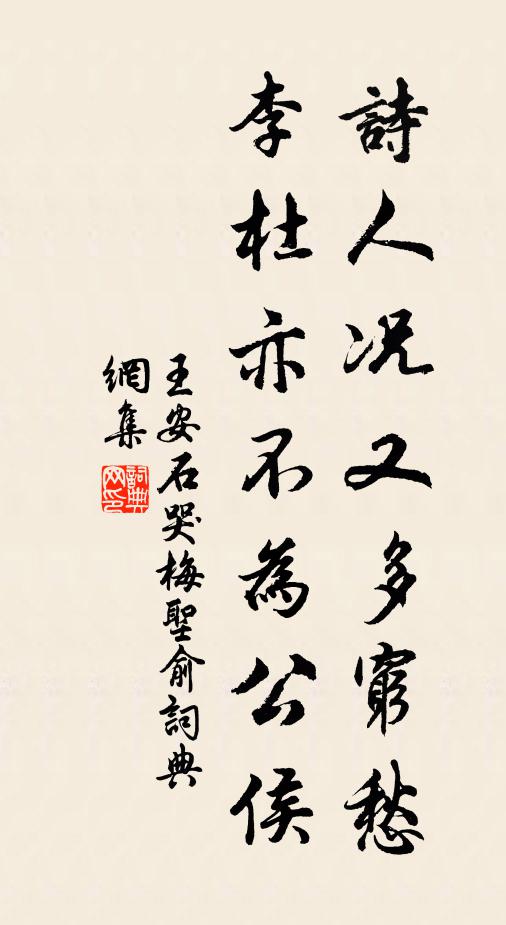 詩人况又多窮愁
李杜亦不為公侯
王安石哭梅聖俞詞典
網集
詞典网印